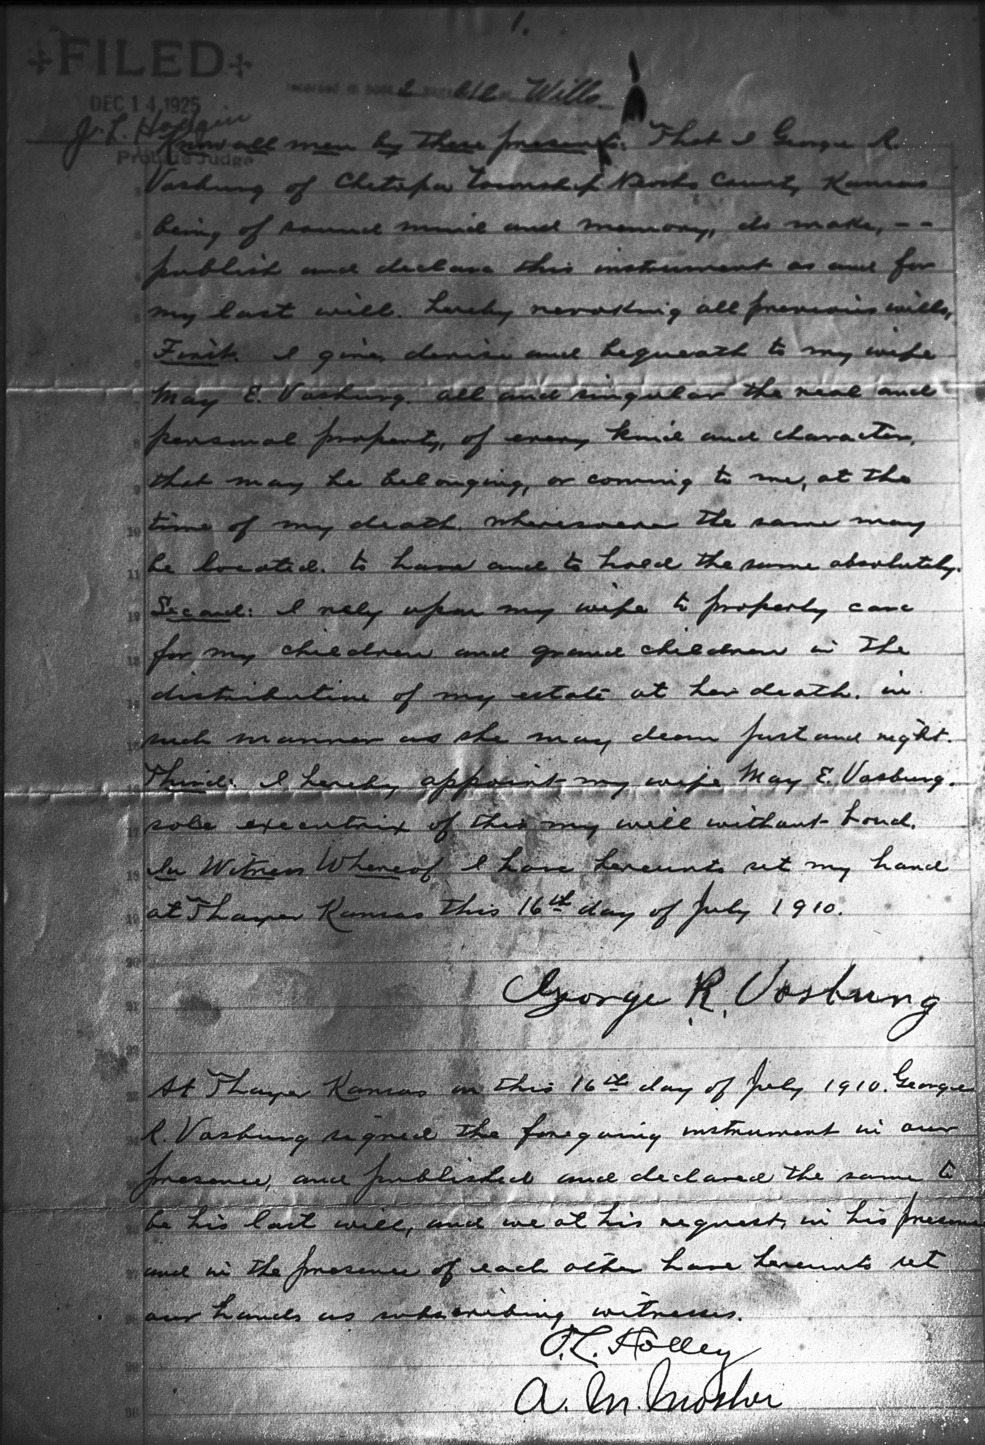 1.
FILED
DEC 14, 1925
Recorded in book 2 Wills
J. L. Hodgin
Probate Judge
Know all men by these presents: That I George R.
Vosburg of Chetopa Township Neosho County Kansas
being of sound mind and memory, do make, - -
publish and declare this instrument as and for
my last will. hereby revoking all previous wills,
First. I give, devise and bequeath to my wife
May E. Vosburg. all and singular the real and
personal property, of every kind and character,
that may be belonging, or coming to me, at the
time of my death. wheresoever the same may
be located. to have and to hold the same absolutely.
Second: I rely upon my wife to properly care
for my children and grand children in the
distribution of my estate at her death. in
such manner as she may deem just and right.
Third: I hereby appoint my wife May E. Vosburg.
sole executrix of this my will without bond.
In Witness Whereof I have hereunto set my hand
at Thayer Kansas this 16th day of July 1910.
George R. Vosburg
At Thayer Kansas on this 16th day of July 1910. George
R. Vosburg signed the foregoing instrument in our
presence, and published and declared the same to
be his last will, and we at his request, in his presence
and in the presence of each other have hereunto set
our hands as subscribing witnesses.
J. L. Holley
A. M. Mosher